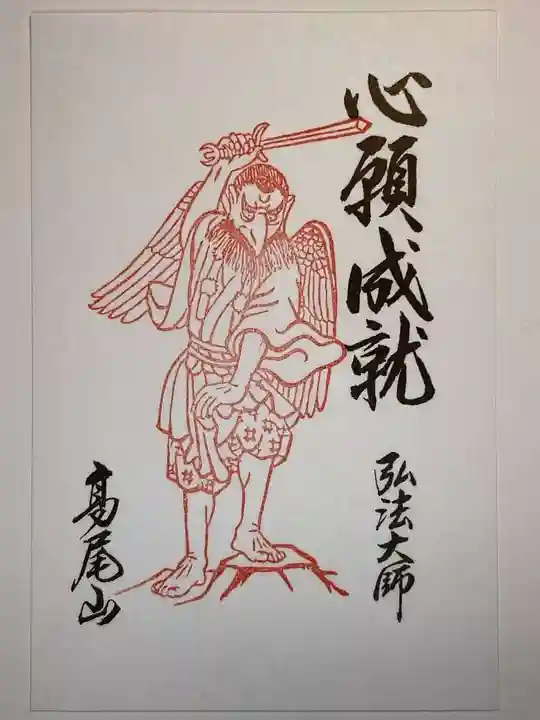 心願成就
弘法大師
髙尾山